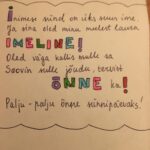 Inimese sinul on üks suur ime.
Ja sina oled minu meelest lausa
IMELINE!
Oled väga kallis mulle ja
Soovin sulle jõudu, tervist
ÕNNE ka!
Palju-palju õnne sünnipäevaks!